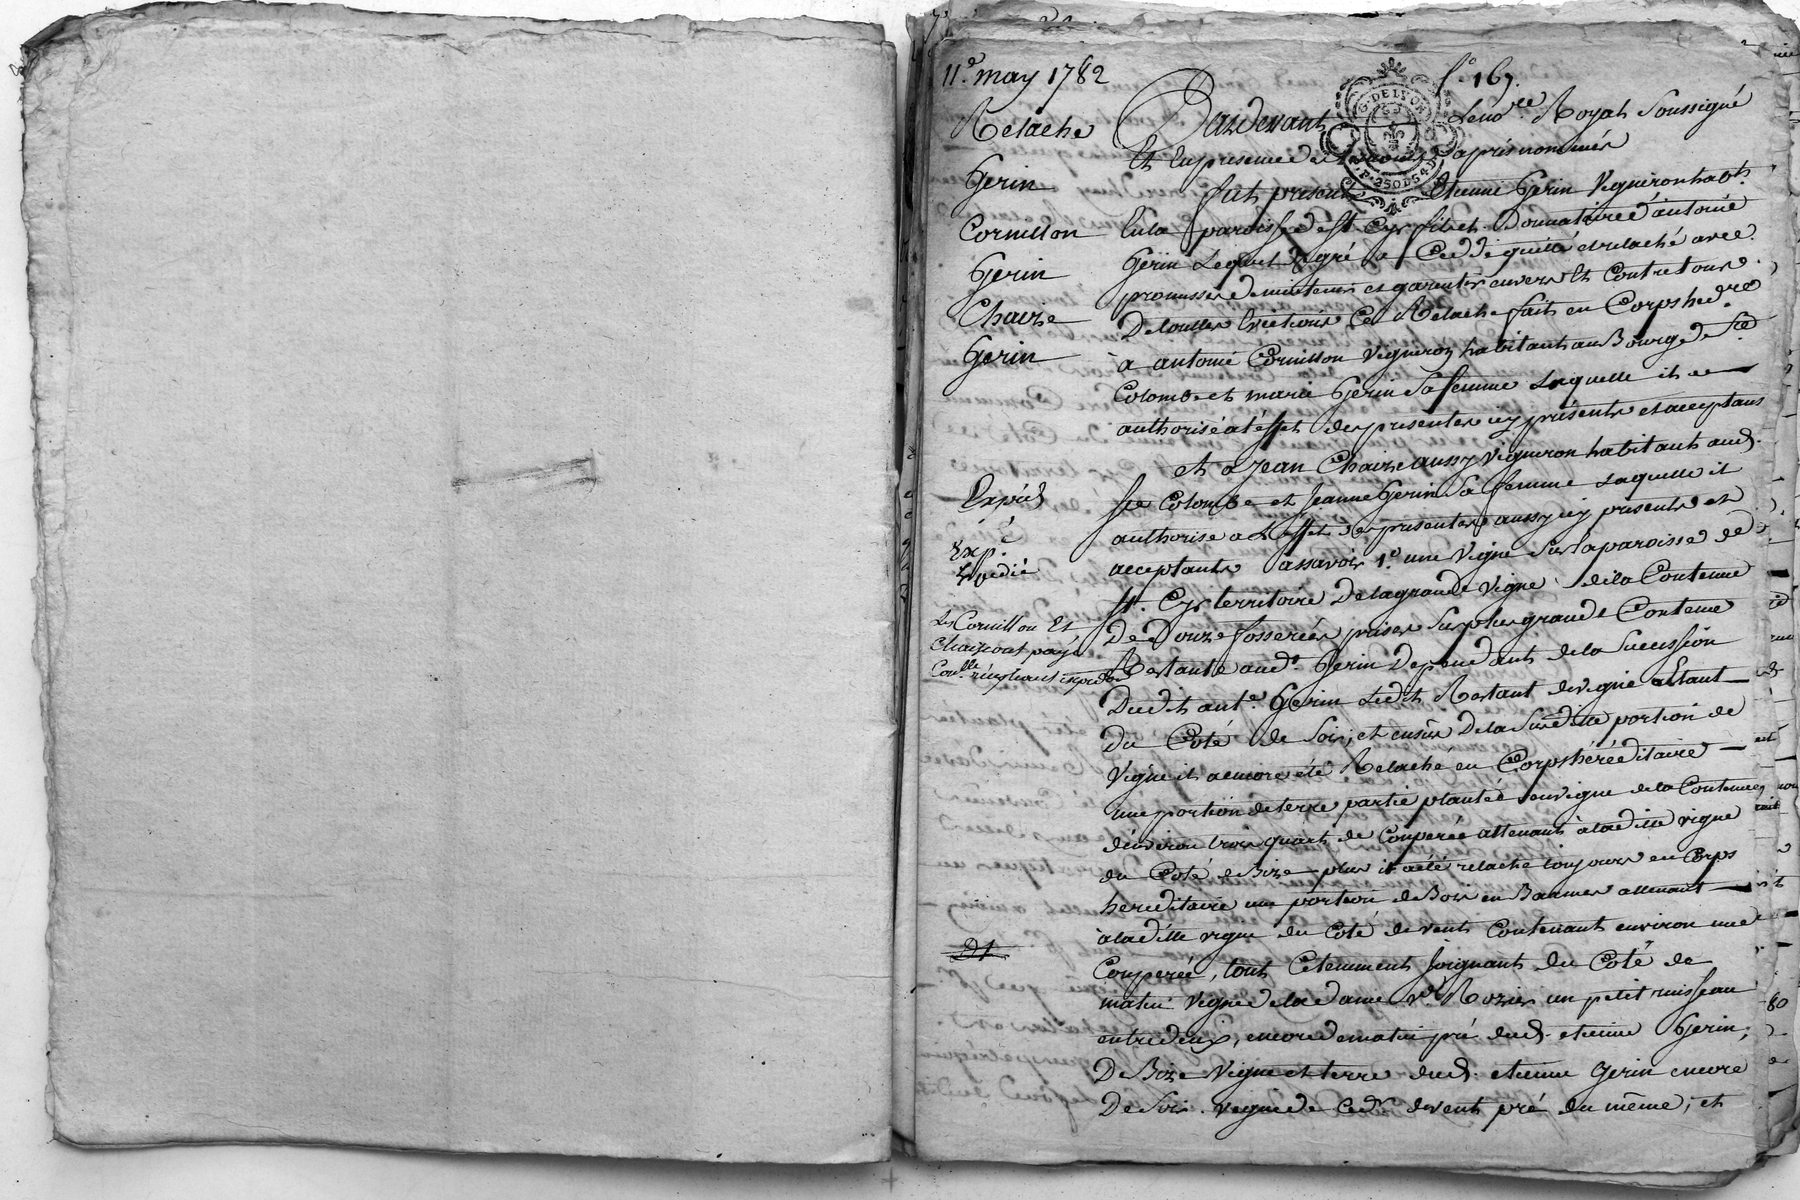 11e. may 1782
fo. 167.
Relache
Gerin
Cornillon
Gerin
Chaize
Gerin
Expéd
Exp.
Expedié
Les Cornillon Et
Chaize ont payé
G. DE LYON
Pardevant Le no.re Royal Soussigné
Et En presence des temoins apres nommés
fut présent Etienne Gerin Vigneron hab.t
En la paroisse de St. Cyr fils et Donnataire d'antoine
Gerin Lequel de gré a Cedé quitté et relaché avec
promesse de maintenir et garentir envers Et Contre tous
De touttes Evictions Ce Relache fait en Corps hed.re
à antoine Cornillon Vigneron habitant au Bourg de Ste
Colombe et marie Gerin Sa femme Laquelle il a
authorisé à l'effet des presentes icy présents et acceptans
et a Jean Chaize aussy Vigneron habitant aud.
Ste Colombe et Jeanne Gerin Sa femme Laquelle il
authorise a L'effet des presentes aussy icy presents et
acceptants assavoir 1o. une Vigne Sur la paroisse de
St. Cyr territoire De la grande Vigne de la Contenue
De Douze fosserées prises Sur plus grande Contenue
Restante aud. Gerin Dependant de la Succession
Dudit ant.e Gerin Ledit Restant de vigne Etant
Du Coté de Soir, et ensuite De la Susditte portion de
Vigne il a encore été Relaché en Corps héréditaire
une portion de terre partie plantée en vigne de la Contenue
d'environ trois quart de Couperée attenant à laditte vigne
du Coté de Bize plus il a été relaché toujours en Corps
hereditaire une portion de Bois en Baumes attenant
à laditte vigne du Coté de vent Contenant environ une
Couperée, tout Cetemment Joignant du Coté de
matin Vigne de la dame v.e Rozier un petit ruisseau
entre deux, encore de matin pré dud. etienne Gerin,
De Bize Vigne et terre dud. etienne Gerin encore
De Soir vigne de Ced.r de vent pré du même, et